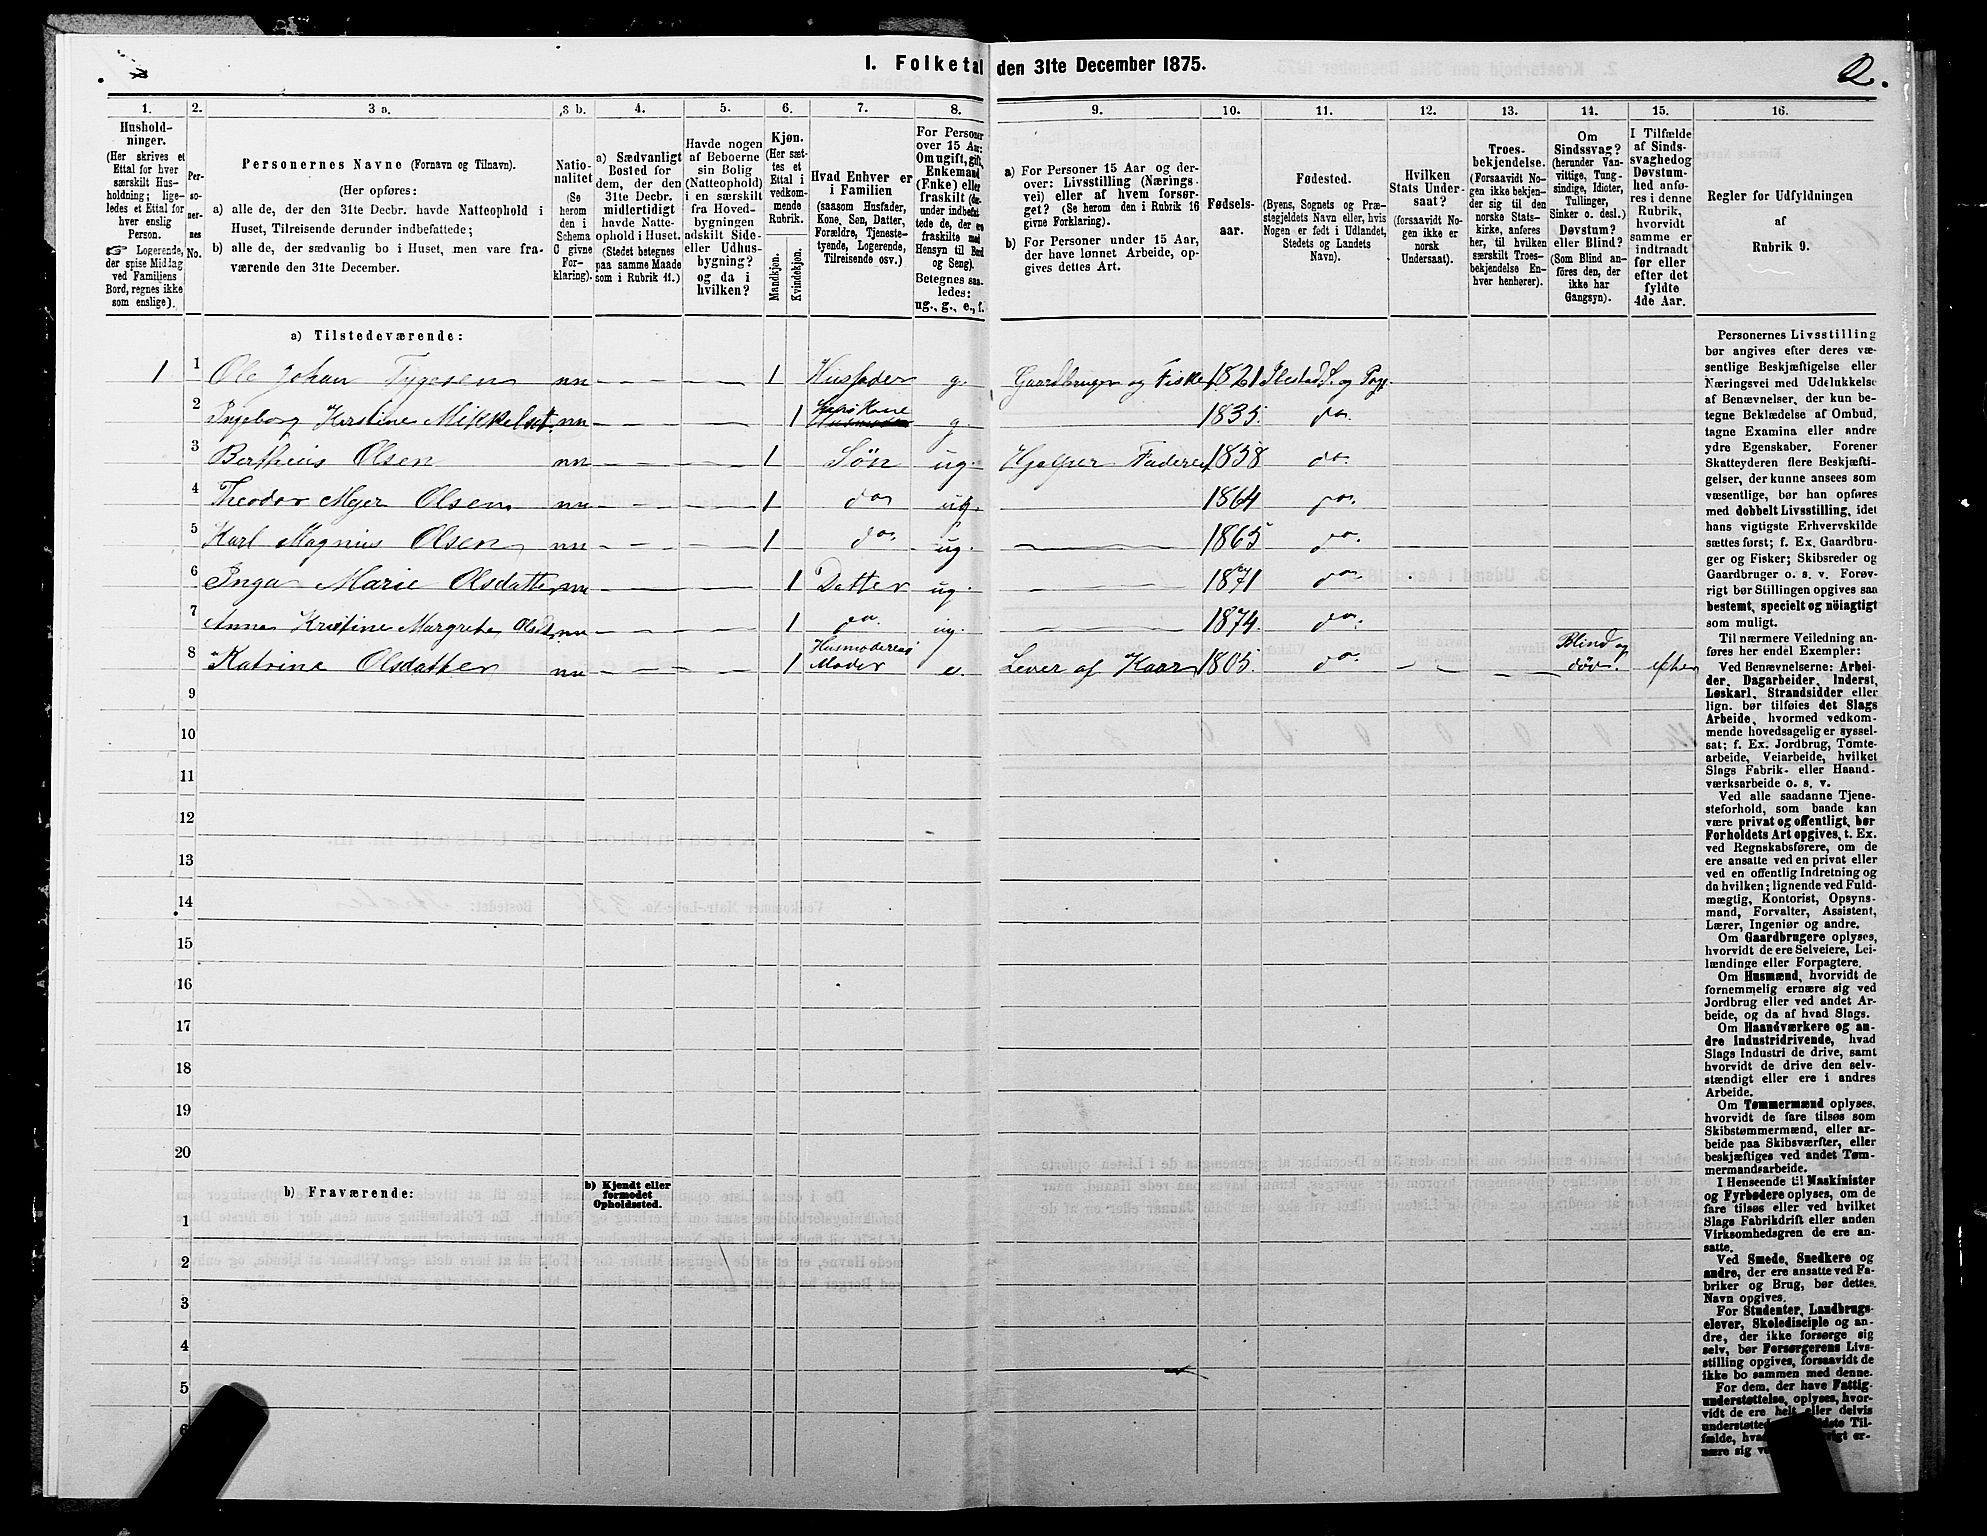 I. Folketal den 31te December 1875.
2.
1. 2. 3 a. 3 b. 4. 5. 6. 7. 8. 9. 10. 11. 12. 13. 14. 15. 16.
Hushold-
ninger.
(Her skrives et
Ettal for hver
særskilt Hus-
holdning; lige-
ledes et Ettal for
hver enslig
Person.
☞ Logerende,
der spise Middag
ved Familiens
Bord, regnes ikke
som enslige).
Per-
so-
ner-
nes
No.
Personernes Navne (Fornavn og Tilnavn).
(Her opføres:
a) alle de, der den 31te Decbr. havde Natteophold i
Huset, Tilreisende derunder indbefattede;
b) alle de, der sædvanlig bo i Huset, men vare fra-
værende den 31te December.
Natio-
nalitet
(Se
herom
den i
Schema
C givne
For-
klaring).
a) Sædvanligt
Bosted for
dem, der den
31te Decbr.
midlertidigt
havde Natte-
ophold i Huset.
(Stedet betegnes
paa samme Maade
som i Rubrik 11.)
Havde nogen
af Beboerne
sin Bolig
(Natteophold)
i en særskilt
fra Hoved-
bygningen
adskilt Side-
eller Udhus-
bygning?
og da i
hvilken?
Kjøn.
(Her sæt-
tes et
Ettal i
vedkom-
mende
Rubrik.
Mandkjøn.
Kvindekjøn.
Hvad Enhver er
i Familien
(saasom Husfader,
Kone, Søn, Datter,
Forældre, Tjeneste-
tyende, Logerende,
Tilreisende osv.)
For Personer
over 15 Aar:
Omugift, gift,
Enkemand
(Enke) eller
fraskilt (der-
under indbefat-
tede de, der ere
fraskilte med
Hensyn til Bord
og Seng).
Betegnes saa-
ledes:
ug., g., e., f.
a) For Personer 15 Aar og der-
over: Livsstilling (Nærings-
vei) eller af hvem forsør-
get? (Se herom den i Rubrik 16
givne Forklaring).
b) For Personer under 15 Aar,
der have lønnet Arbeide, op-
gives dettes Art.
Fødsels-
aar.
Fødested.
(Byens, Sognets og Præ-
stegjeldets Navn eller, hvis
Nogen er født i Udlandet,
Stedets og Landets
Navn).
Hvilken
Stats Under-
saat?
(forsaavidt No-
gen ikke er
norsk
Undersaat).
Troes-
bekjendelse.
(Forsaavidt No-
gen ikke bekjen-
der sig til den
norske Stats-
kirke, anføres
her, til hvilken
særskilt Troes-
bekjendelse En-
hver henhører).
Om
Sindssvag?
(herunder Van-
vittige, Tung-
sindige, Idioter,
Tullinger,
Sinker o. desl.)
Døvstum?
eller Blind?
(Som Blind an-
føres den, der
ikke har
Gangsyn).
I Tilfælde
af Sinds-
svaghed og
Døvstum-
hed anfø-
res i denne
Rubrik,
hvorvidt
samme er
indtraadt
før eller
efter det
fyldte
4de Aar.
Regler for Udfyldningen
af
Rubrik 9.
a) Tilstedeværende:
1 1 Ole Johan Tygesen nn — — 1 Husfader g. Gaardbruger og Fisker 1821 Ibestad S. og Pgj.
2 Ingeborg Kirstine Mikkelsd. nn — — 1 Hans Kone g. 1835. do.
3 Bertheus Olsen nn — — 1 Søn ug. Hjælper Faderen 1858 do.
4 Theodor Mejer Olsen nn — — 1 do ug. 1864 do.
5 Karl Magnus Olsen nn — — 1 do. ug. — 1865 do.
6 Inga Marie Olsdatter nn — — 1 Datter ug. — 1871 do.
7 Anna Kristine Margrete Olsdt. nn — — 1 do. ug. — 1874. do.
8 Katrine Olsdatter nn — — 1 Husmoderens Moder e. Lever af Kaar 1805. do. — — — Blind og døv. efter
9
10
11
12
13
14
15
16
17
18
19
20
b) Fraværende:
b) Kjendt eller
formodet
Opholdssted.
1
2
3
4
5
6
Personernes Livsstilling
bør angives efter deres væ-
sentlige Beskjæftigelse eller
Næringsvei med Udelukkelse
af Benævnelser, der kun be-
tegne Beklædelse af Ombud,
tagne Examina eller andre
ydre Egenskaber. Forener
Skatteyderen flere Beskjæfti-
gelser, der kunne ansees som
væsentlige, bør han opføres
med dobbelt Livsstilling, idet
hans vigtigste Erhvervskilde
sættes først; f. Ex. Gaardbru-
ger og Fisker; Skibsreder og
Gaardbruger o. s. v. Forøv-
rigt bør Stillingen opgives saa
bestemt, specielt og nöiagtigt
som muligt.
Til nærmere Veiledning an-
føres her endel Exempler:
Ved Benævnelserne: Arbei-
der, Dagarbeider, Inderst,
Løskarl, Strandsidder eller
lign. bør tilføies det Slags
Arbeide, hvormed vedkom-
mende hovedsagelig er syssel-
sat; f. Ex. Jordbrug, Tømte-
arbeide, Veiarbeide, hvilket
Slags Fabrik- eller Haand-
værksarbeide o. s. v.
Ved alle saadanne Tjene-
steforhold, som baade kan
være privat og offentligt, bør
Forholdets Art opgives, t. Ex.
ved Regnskabsførere, om de
ere ansatte ved en privat eller
ved en offentlig Indretning og
da hvilken; lignende ved Fuld-
mægtig, Kontorist, Opsyns-
mand, Forvalter, Assistent,
Lærer, Ingeniør og andre.
Om Gaardbrugere oplyses,
hvorvidt de ere Selveiere, Lei-
lændinge eller Forpagtere.
Om Husmænd, hvorvidt de
fornemmelig ernære sig ved
Jordbrug eller ved andet Ar-
beide, og da af hvad Slags.
Om Haandværkere og an-
dre Industridrivende, hvad
Slags Industri de drive, samt
hvorvidt de drive den selv-
stændigt eller ere i andres
Arbeide.
Om Tømmermænd oplyses,
hvorvidt de fare tilsøs som
Skibstømmermænd, eller ar-
beide paa Skibsværfter, eller
beskjæftiges ved andet Tøm-
mermandsarbeide.
I Henseende til Maskinister
og Fyrbødere oplyses, om de
fare tilsøs eller ved hvilket
Slags Fabrikdrift eller anden
Virksomhedsgren de ere an-
satte.
Ved Smede, Snedkere og
andre, der ere ansatte ved Fa-
briker og Brug, bør dettes
Navn opgives.
For Studenter, Landbrugs-
elever, Skoledisciple og an-
dre, der ikke forsørge sig
selv, bør Forsørgerens Livs-
stilling opgives, forsaavidt de
ikke bo sammen med denne.
For dem, der have Fattig-
understøttelse, oplyses, hvor-
vidt de ere helt eller delvis